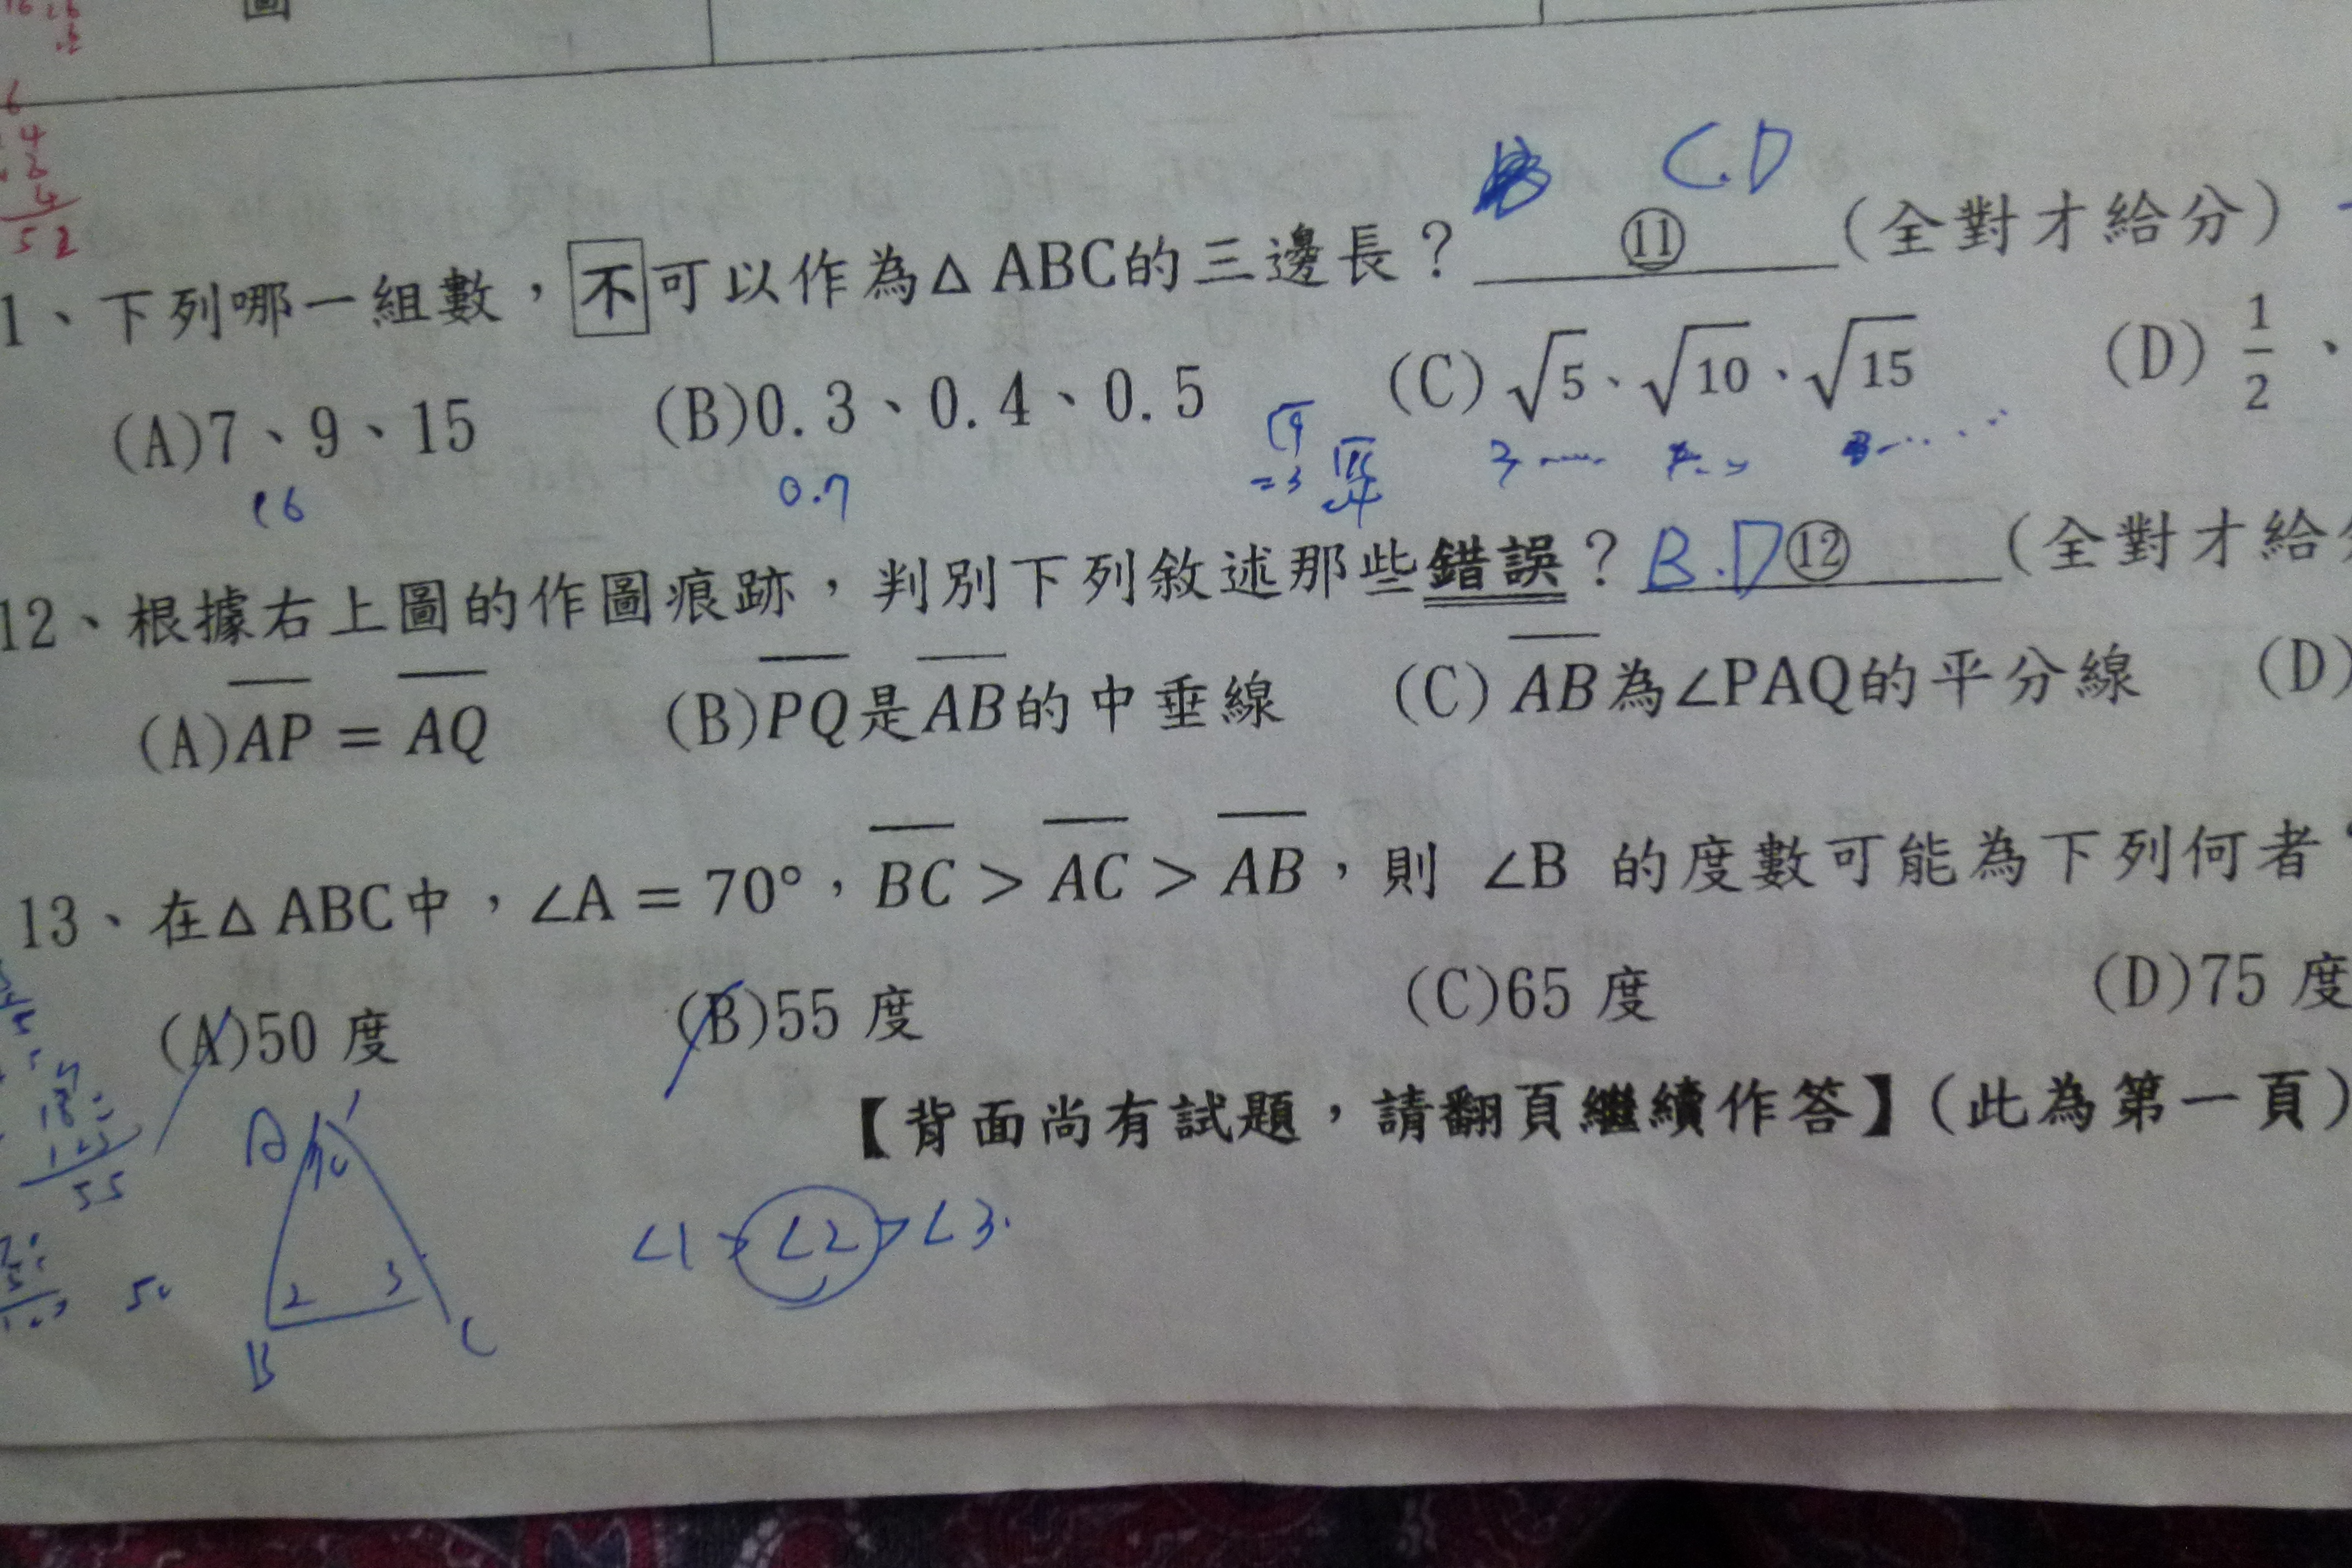 圖
6
4
52
C.D
1、下列哪一組數，不可以作為△ABC的三邊長？ ⑪ (全對才給分)
(A)7、9、15 (B)0.3、0.4、0.5 (C)√5、√10、√15 (D)1/2、
16 0.7 √9 =3
12、根據右上圖的作圖痕跡，判別下列敘述那些錯誤？ B.D ⑫ (全對才給
(A)AP = AQ (B)PQ是AB的中垂線 (C) AB為∠PAQ的平分線 (D)
13、在△ABC中，∠A = 70°，BC > AC > AB，則 ∠B 的度數可能為下列何者
(A)50 度 (B)55 度 (C)65 度 (D)75 度
【背面尚有試題，請翻頁繼續作答】(此為第一頁)
55
A 1
∠1 > ∠2 > ∠3
2 3
B C